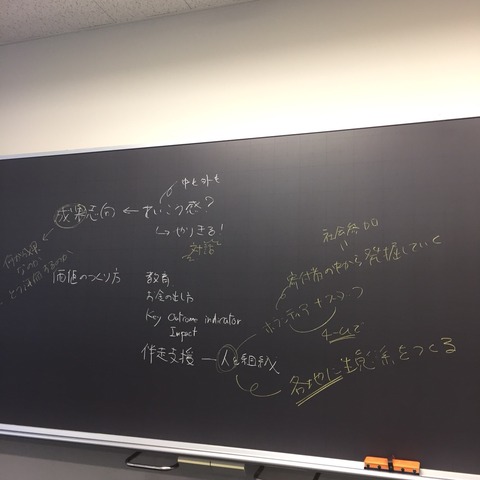 中も外も
成果志向 ← せいこう感?
↳ やりきる!
対話
何が成果
なのか
どう評価するのか
社会参加
寄付者の中から発掘していく
価値のつくり方
教育
お金の出し方
Key Outcome indicator
Impact
ボランティア
チームで
伴走支援 — 人を組織へ
各地に生態系をつくる